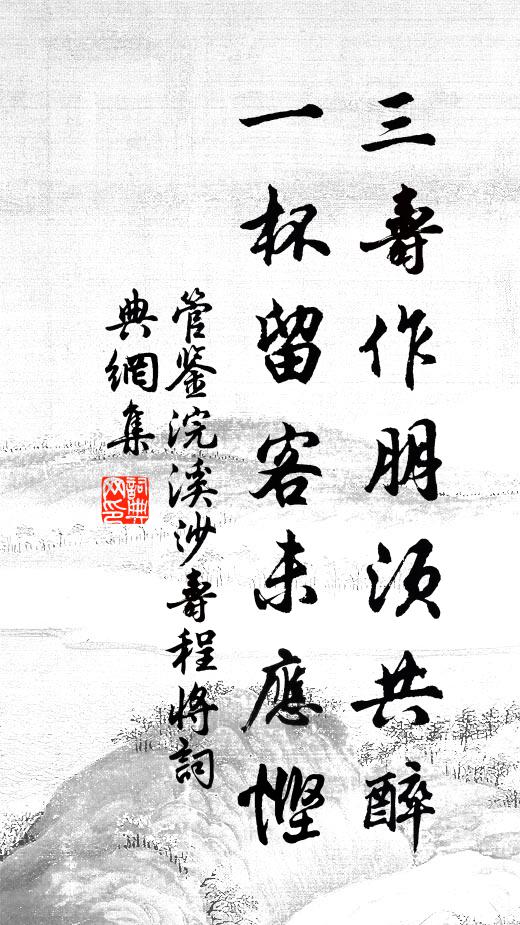 三壽作朋須共醉
一杯留客未應慳
管鉴浣溪沙壽程將詞
典網集
詞典網印